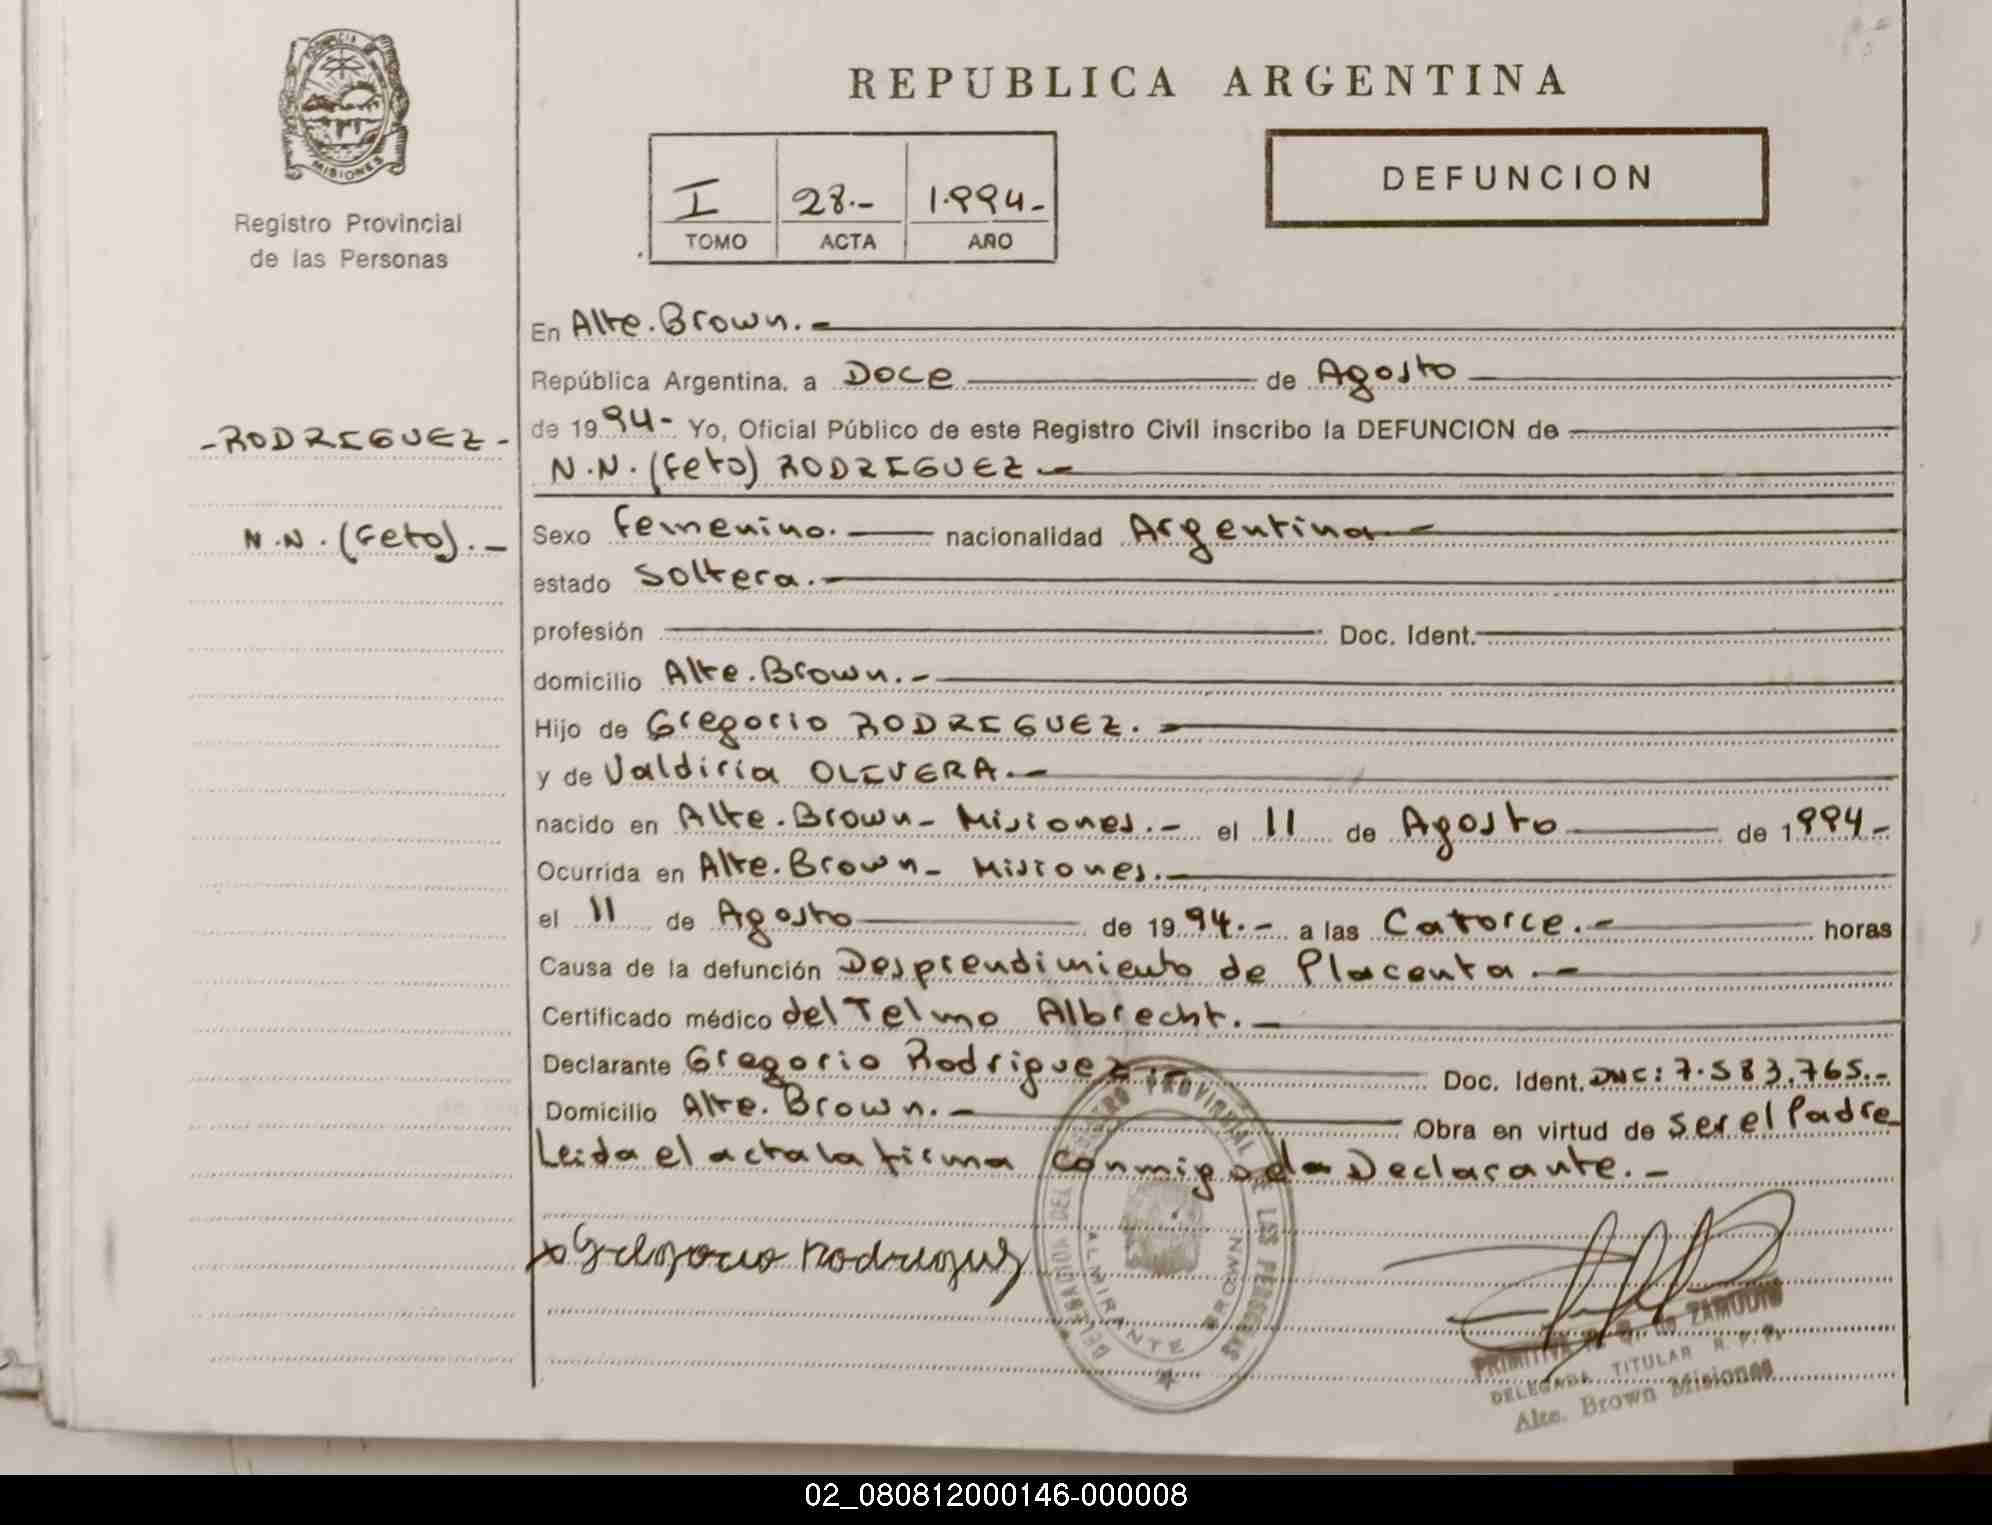 REPUBLICA ARGENTINA
PROVINCIA DE
MISIONES
Registro Provincial
de las Personas
I 28.- 1.994-
TOMO ACTA AÑO
DEFUNCION
En Alte. Brown.-
República Argentina, a Doce de Agosto
de 1994- Yo, Oficial Público de este Registro Civil inscribo la DEFUNCION de
-RODRIGUEZ-
N.N. (Feto) RODRIGUEZ.-
N.N. (Feto).-
Sexo Femenino.- nacionalidad Argentina-
estado Soltera.-
profesión Doc. Ident.
domicilio Alte. Brown.-
Hijo de Gregorio RODRIGUEZ.-
y de Valdiria OLIVERA.-
nacido en Alte. Brown- Misiones.- el 11 de Agosto de 1994-
Ocurrida en Alte. Brown- Misiones.-
el 11 de Agosto de 1994.- a las Catorce.- horas
Causa de la defunción Desprendimiento de Placenta.-
Certificado médico del Telmo Albrecht.-
Declarante Gregorio Rodriguez.- Doc. Ident. DNI: 7.583.765.-
Domicilio Alte. Brown.- Obra en virtud de ser el Padre
Leida el acta la firma conmigo el Declarante.-
Gregorio Rodriguez
DELEGACIA DEL REGISTRO PROVINCIAL DE LAS PERSONAS
ALMIRANTE BROWN
PRIMITIVA de ZAMUDIO
DELEGADA TITULAR R. P. P.
Alte. Brown Misiones
02_080812000146-000008